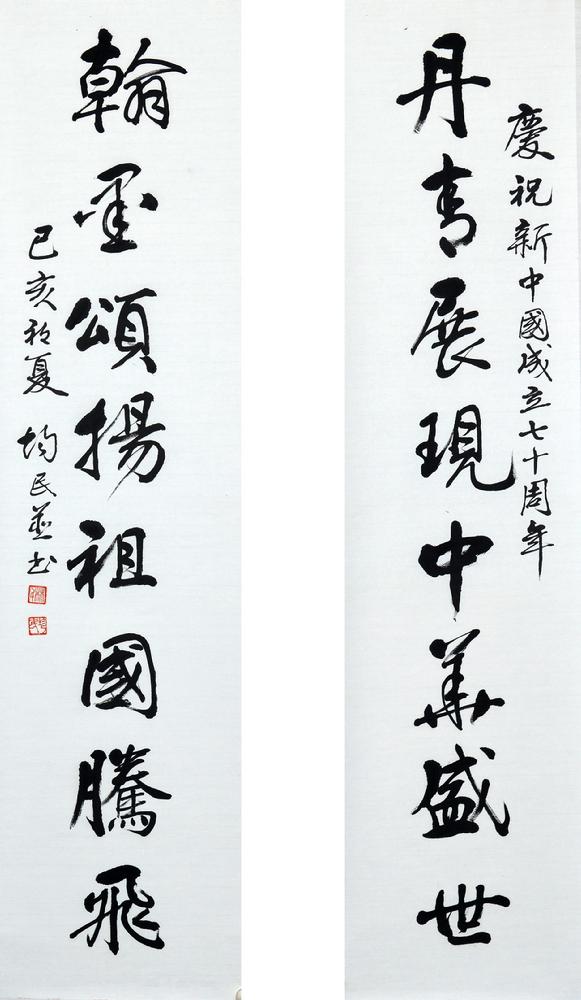 慶祝新中國成立七十周年
丹青展現中華盛世
翰墨頌揚祖國騰飛
己亥初夏 均民並书